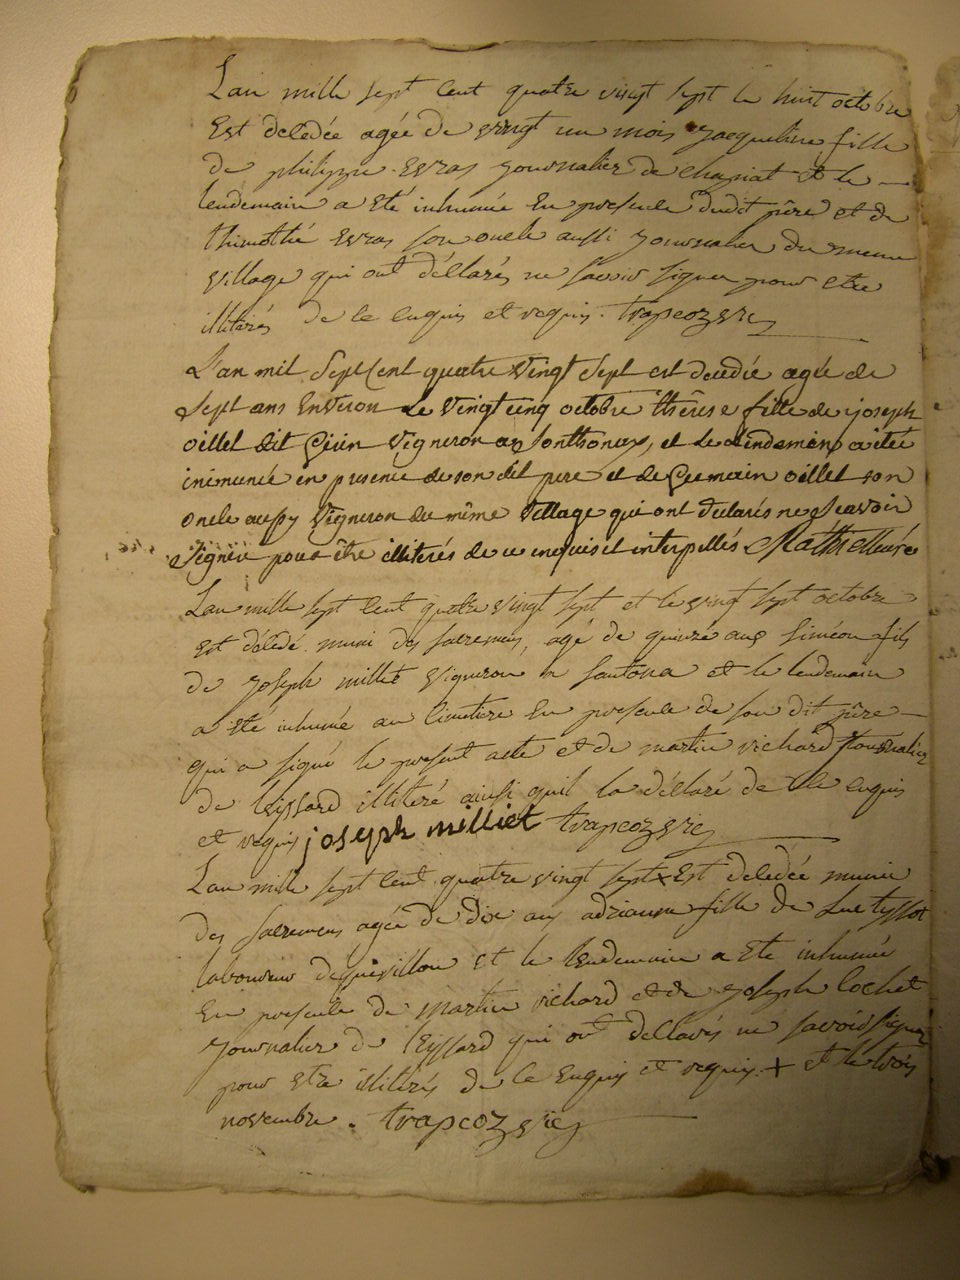 L'an mille sept cent quatre vingt sept le huit octobre
Est deledée agée de vingt un mois jacqueline fille
de philippe Evras journalier de et le
lendemain a Eté inhumée En presence dudit père et de
thimothé Evras son oncle aussi journalier du meme
village qui ont déllarés ne savoir signer pour etre
illiterés de ce enquis et requis. trapcozvic
L'an mil Sept Cent quatre Vingt Sept est decedée agée de
Sept ans Environ Le Vingt cinq octobre thérese fille de joseph
oillet dit Vigneron a Sonthonax, et Le Lendemain a été
inhumée en presence de son dit pere et de Germain oillet son
oncle aussy Vigneron du même Village qui ont declarés ne Scavoir
Signer pour être illiterés de ce enquis et interpellés
L'an mille sept cent quatre vingt sept et le vingt sept octobre
Est deledé muni des sacremens, agé de quinze ans Siméon fils
de joseph milliet vigneron a Santona et le lendemain
a eté inhumé au limitiere En presence de son dit père
qui a signé le present acte et de martin richard journalier
de leissard illiteré ainsi quil la déllaré de ce enquis
et requis joseph milliet trapcozvic
L'an mille sept cent quatre vingt sept + Est deledée munie
des sacremens agée de dix ans adrianne fille de Luc tissot
laboureur de quevillon et le lendemain a Eté inhumée
En presence de martin richard et de joseph lochet
journalier de leyssard qui ont dellarés ne savoir signer
pour etre illiterés de ce Enquis et requis. + et le trois
novembre. trapcozvic